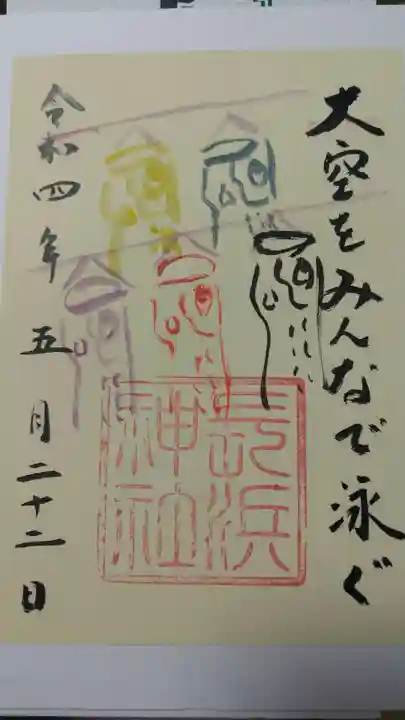 大空をみんなで泳ぐ
長浜
神社
令和四年 五月二十二日